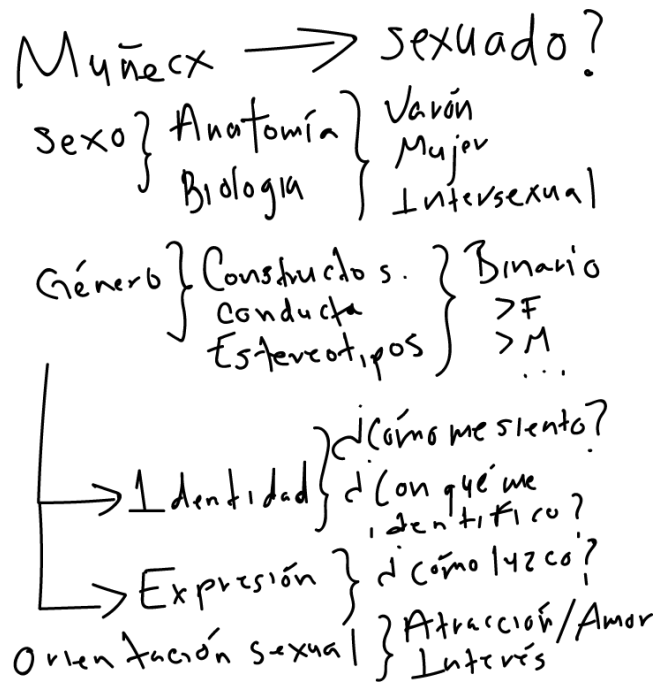 Muñecx → sexuado?
Sexo } Anatomía } Varón
Biología Mujer
Intersexual
Género } Constructo s. } Binario
conducta >F
Estereotipos >M
...
→ Identidad } ¿Cómo me siento?
¿Con qué me
identifico?
→ Expresión } ¿cómo luzco?
Orientación sexual } Atracción/Amor
Interés